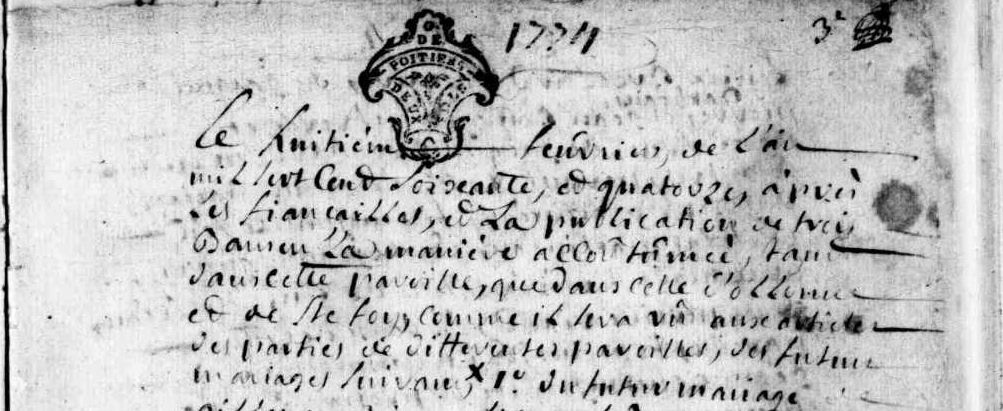 1774
3e
G. DE
POITIERS
DEUX
Le huitiém feûvrier, de L'an
mil sept Cent Soixante, et quatorze, áprés
Les fiançailles, et La publication de trois
Bans en La maniére accoutûmeé, tant
dans cette paroisse, que dans celle d'ollonne
et de Ste foy, comme il sera vû aux articles
des parties de differentes paroisses, des futurs
mariages suivans, x 1o. du futur mariage